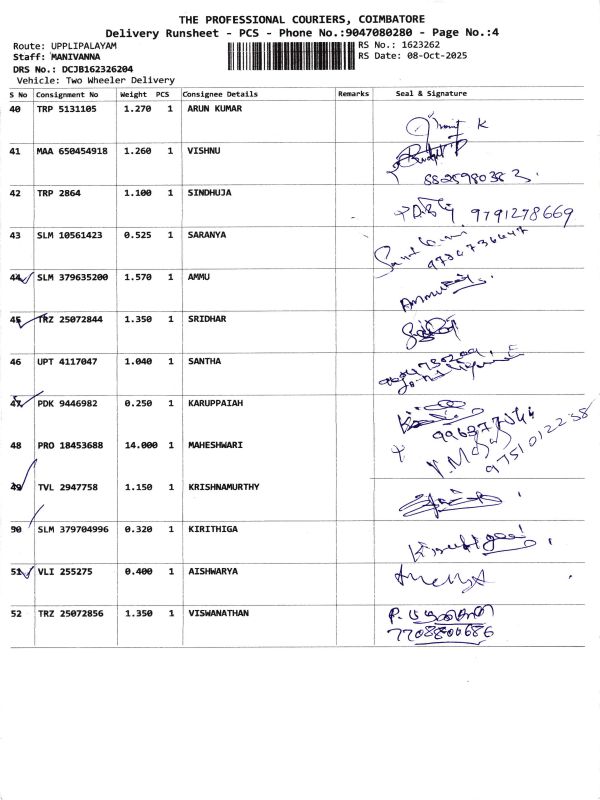 THE PROFESSIONAL COURIERS, COIMBATORE
Delivery Runsheet - PCS - Phone No.:9047080280 - Page No.:4
Route: UPPLIPALAYAM RS No.: 1623262
Staff: MANIVANNA RS Date: 08-Oct-2025
DRS No.: DCJB162326204
Vehicle: Two Wheeler Delivery
S No Consignment No Weight PCS Consignee Details Remarks Seal & Signature
40 TRP 5131105 1.270 1 ARUN KUMAR
K
41 MAA 650454918 1.260 1 VISHNU
8825980382
42 TRP 2864 1.100 1 SINDHUJA
9791278669
43 SLM 10561423 0.525 1 SARANYA
44 SLM 379635200 1.570 1 AMMU
Ammu
45 TRZ 25072844 1.350 1 SRIDHAR
46 UPT 4117047 1.040 1 SANTHA
47 PDK 9446982 0.250 1 KARUPPAIAH
48 PRO 18453688 14.000 1 MAHESHWARI
9751012238
49 TVL 2947758 1.150 1 KRISHNAMURTHY
50 SLM 379704996 0.320 1 KIRITHIGA
51 VLI 255275 0.400 1 AISHWARYA
52 TRZ 25072856 1.350 1 VISWANATHAN
7708800686